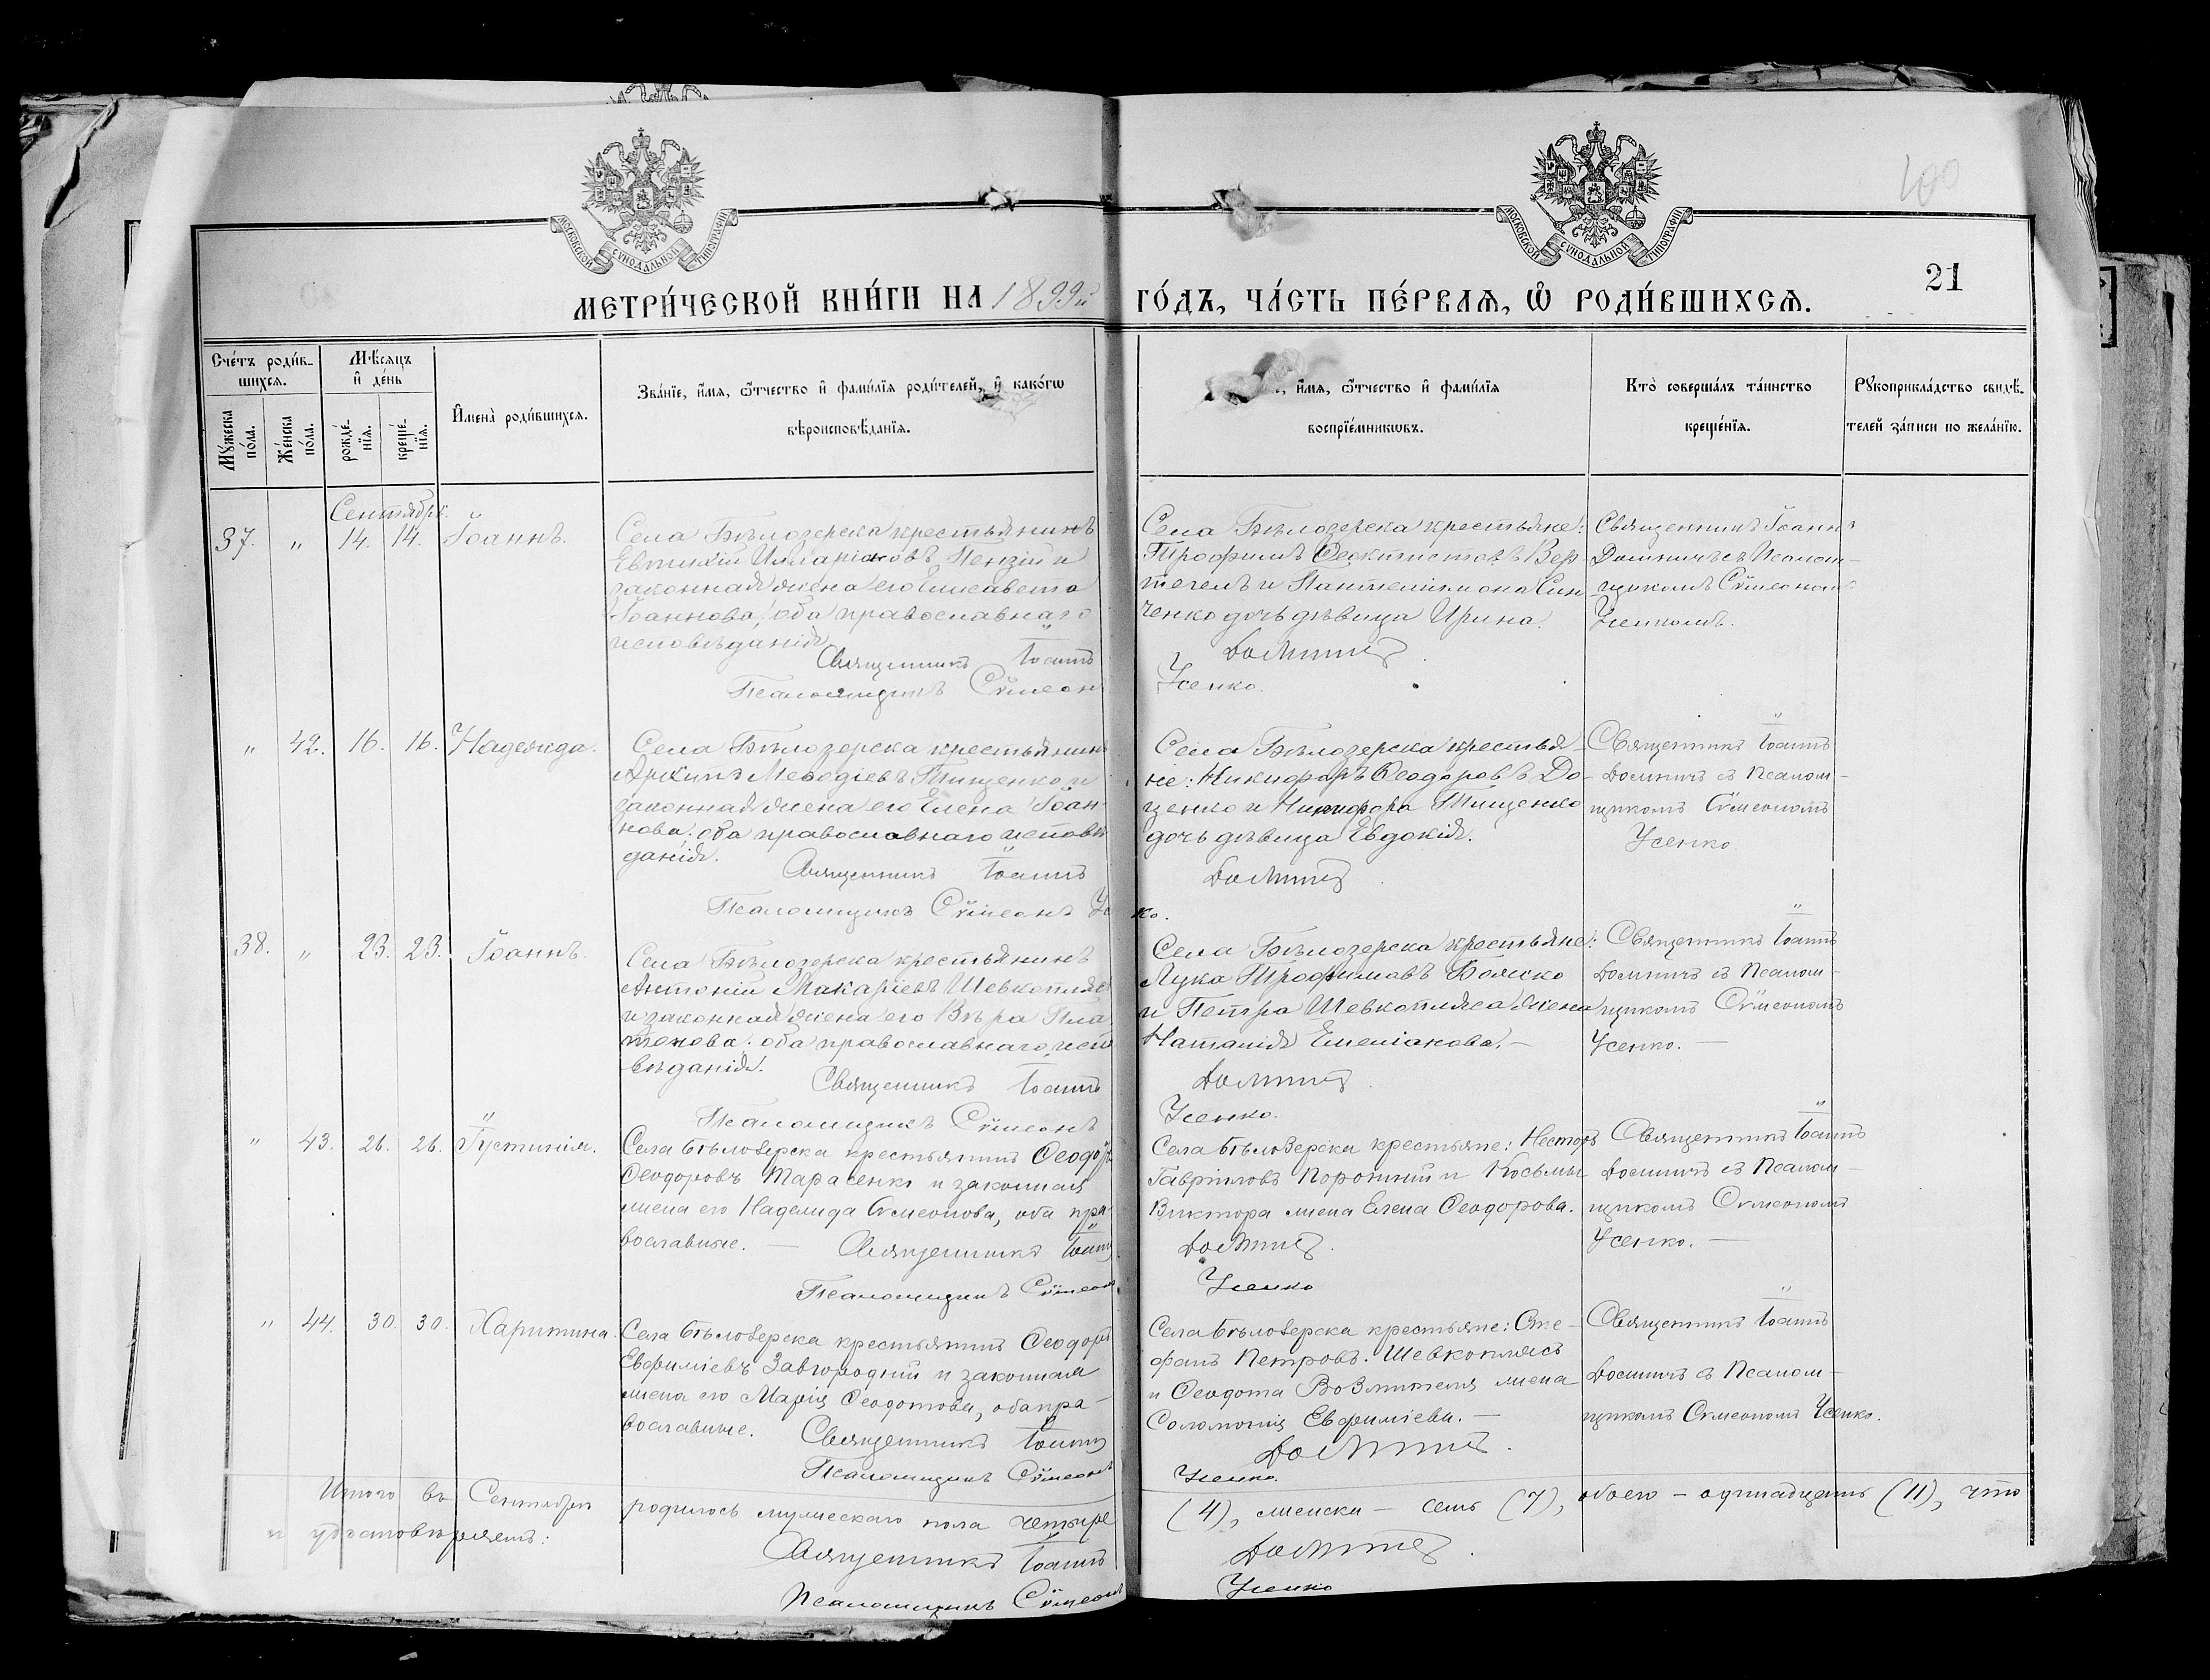 МОСКОВСКОЙ СѴНОДАЛЬНОЙ ТИПОГРАФІИ
МОСКОВСКОЙ СѴНОДАЛЬНОЙ ТИПОГРАФІИ
100
21
МЕТРИ́ЧЕСКОЙ КНИ́ГИ НА 1899й ГО́ДЪ, ЧА́СТЬ ПЕ́РВАЯ, Ѡ РОДИ́ВШИХСЯ.
Сче́тъ роди́в-
шихся.
Мꙋ́жеска по́ла.
Же́нска по́ла.
Мѣ́сяцъ
и де́нь
рожде́-
нїя.
креще́-
нїя.
Имена̀ роди́вшихся.
Зва́нїе, и́мя, ѻ́тчество и фами́лїя роди́телей, и како́гѡ
вѣроисповѣ́данїя.
и́мя, ѻ́тчество и фами́лїя
воспрїе́мникѡвъ.
Кто̀ соверша́лъ та́инство
креще́нїя.
Рꙋкоприкла́дство свидѣ́-
телей за́писи по жела́нїю.
Сентябрь.
37. " 14. 14. Іоаннъ.
Села Бѣлозерска крестьянинъ
Евтихій Илларіоновъ и
законная жена его Елисавета
Іоаннова; оба православнаго
исповѣданія.
Священникъ Іоаннъ
Псаломщикъ Сѵмеонъ
Села Бѣлозерска крестьяне:
Трофимъ Ѳеоктистовъ Вер-
тегелъ и Пантелеимона Син-
ченко дочь дѣвица Ирина.
Усенко.
Священникъ Іоаннъ
съ Псалом-
щикомъ Сѵмеономъ
" 42. 16. 16. Надежда.
Села Бѣлозерска крестьянинъ
Архипъ Меѳодіевъ Тищенко и
законная жена его Елена Іоан-
нова; оба православнаго исповѣ
данія.
Священникъ Іоаннъ
Псаломщикъ Сѵмеонъ Усен
ко.
Села Бѣлозерска крестья-
не: Никифоръ Ѳеодоровъ До-
ценко и Никифора Тищенко
дочь дѣвица Евдокія.
Священникъ Іоаннъ
съ Псалом-
щикомъ Сѵмеономъ
Усенко.
38. " 23. 23. Іоаннъ.
Села Бѣлозерска крестьянинъ
Антоній Макаріевъ Шевкопляс
и законная жена его Вѣра Пла-
тонова; оба православнаго испо
вѣданія.
Священникъ Іоаннъ
Псаломщикъ Сѵмеонъ
Села Бѣлозерска крестьяне:
Лука Трофимовъ Божко
и Петра Шевкопляса жена
Наталія Емеліанова.—
Усенко.
Священникъ Іоаннъ
съ Псалом-
щикомъ Сѵмеономъ
Усенко.—
" 43. 26. 26. Іустинія.
Села Бѣлозерска крестьянинъ Ѳеодоръ
Ѳеодоровъ Тарасенко и законная
жена его Надежда Сѵмеонова, оба пра-
вославные.— Священникъ Іоаннъ
Псаломщикъ Сѵмеонъ
Села Бѣлозерска крестьяне: Несторъ
Гавріиловъ Порожній и Косьмы
Виктора жена Елена Ѳеодорова.
Усенко
Священникъ Іоаннъ
съ Псалом-
щикомъ Сѵмеономъ
Усенко.—
" 44. 30. 30. Харитина.
Села Бѣлозерска крестьянинъ Ѳеодоръ
Евѳиміевъ Завгородній и законная
жена его Марія Ѳеодотова, оба пра-
вославные. Священникъ Іоаннъ
Псаломщикъ Сѵмеонъ
Села Бѣлозерска крестьяне: Сте-
фанъ Петровъ Шевкоплясъ
и Ѳеодота жена
Соломонія Евѳиміева.—
Усенко.
Священникъ Іоаннъ
съ Псалом-
щикомъ Сѵмеономъ Усенко.
Итого въ Сентябрѣ родилось мужескаго пола четыре (4), женска — семь (7), обоего — одинадцать (11), что
и удостовѣряемъ:
Священникъ Іоаннъ
Псаломщикъ Сѵмеонъ Усенко